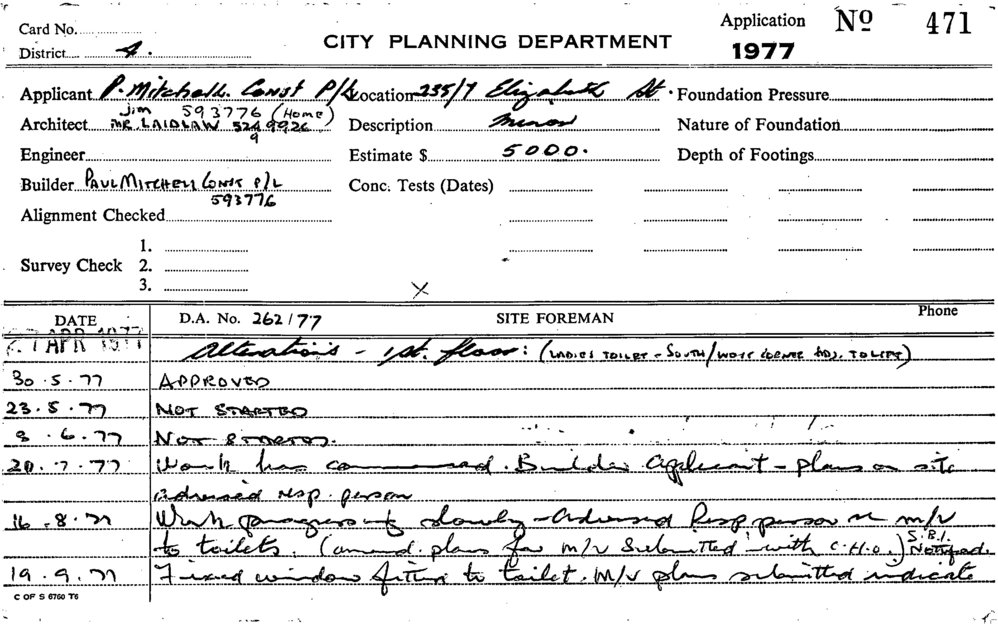 Card No. Application No 471
District 4. CITY PLANNING DEPARTMENT 1977
Applicant P. Mitchell Const P/L Location 235/7 Elizabeth St. Foundation Pressure
Jim 593776 (Home)
Architect MR. LAIDLAW 524 9926 Description Minor Nature of Foundation
9
Engineer Estimate $ 5000. Depth of Footings
Builder PAUL MITCHELL CONST P/L Conc. Tests (Dates)
593776
Alignment Checked
1.
Survey Check 2.
3. X
DATE D.A. No. 262/77 SITE FOREMAN Phone
APR 1977 Alterations - 1st. floor: (LADIES TOILET - SOUTH/WEST CORNER ADJ. TO LIFT)
30.5.77 APPROVED
23.5.77 NOT STARTED
8.6.77 NOT STARTED.
20.7.77 Work has commenced. Builder applicant - plans on site
advised resp. person
16.8.77 Work progressing slowly - advised Resp person re m/v
to toilets. (amend. plans for m/v submitted with C.H.O.) S.B.I. Notified.
19.9.77 Fixed window fitted to toilet. M/V plans submitted indicate
C OF S 6760 T6